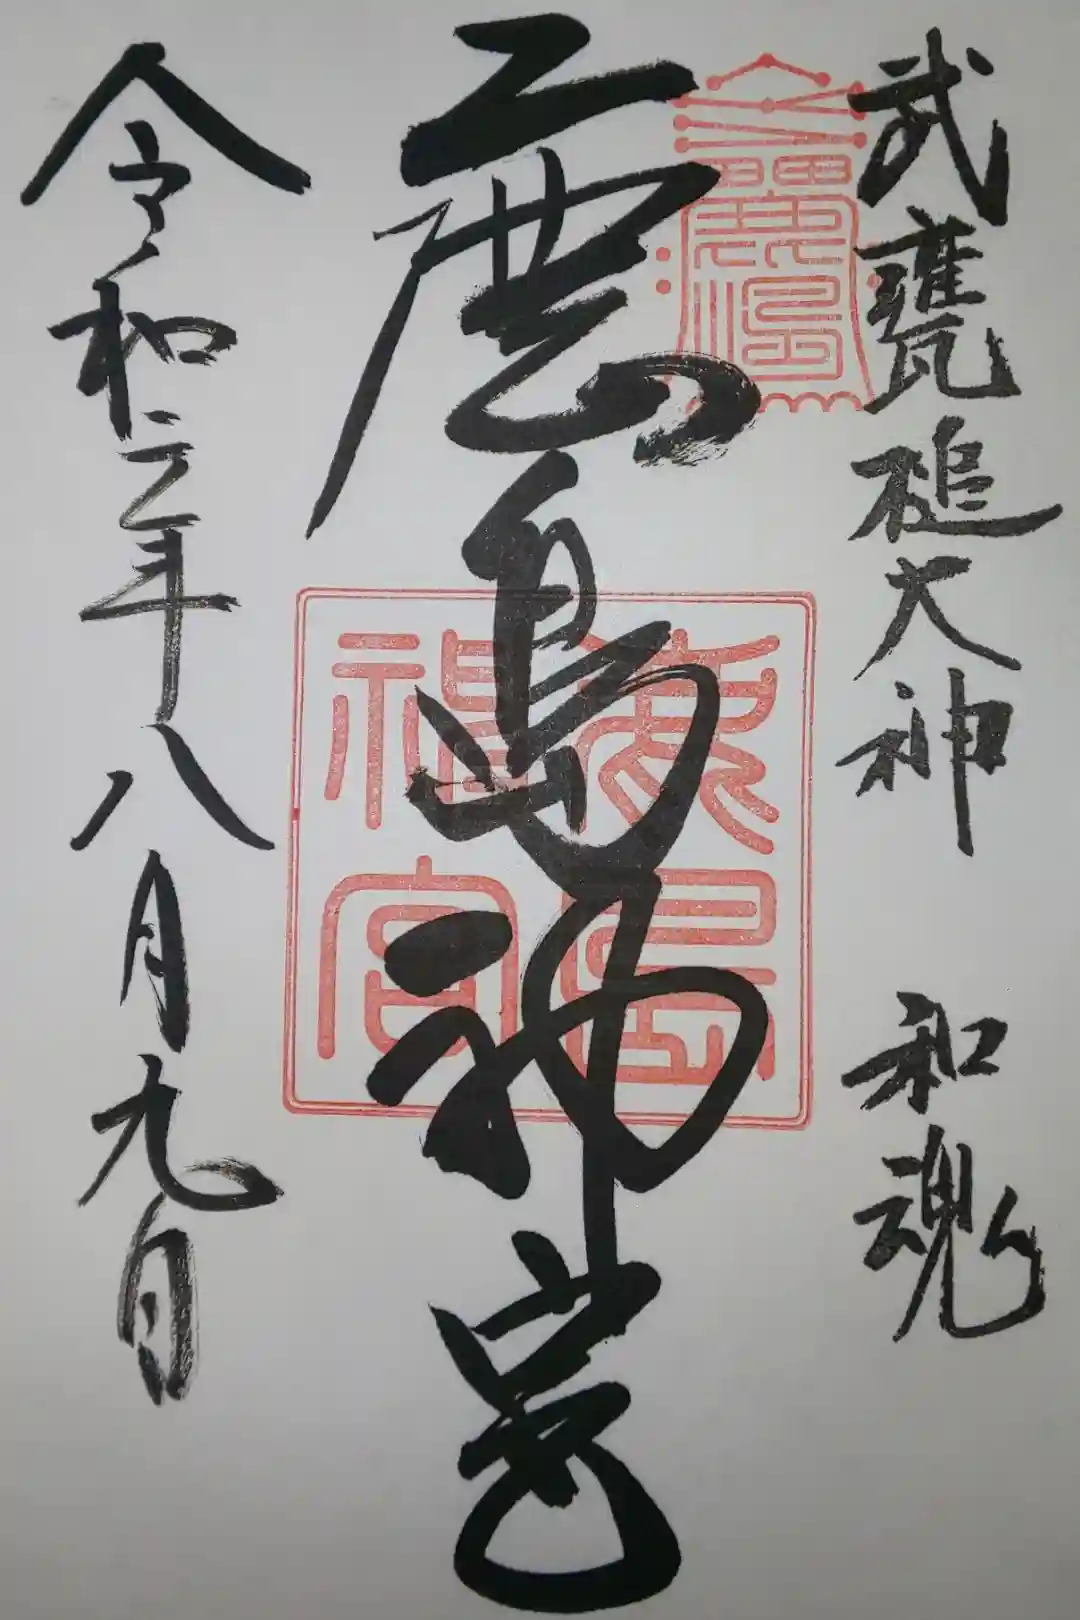 武甕槌大神 和魂
鹿島神宮
令和三年八月九日
鹿島神宮